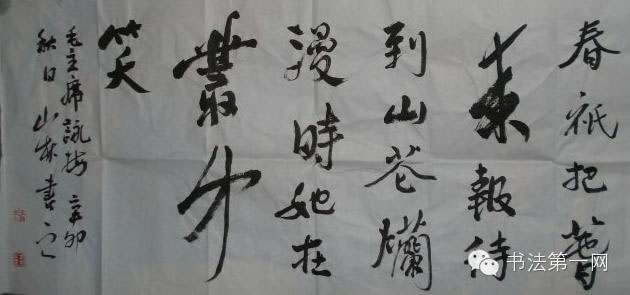 春祇把萅
来報待
到山花爛
漫時她在
叢中
笑
毛主席詠梅 辛卯
秋日山書之
书法第一网